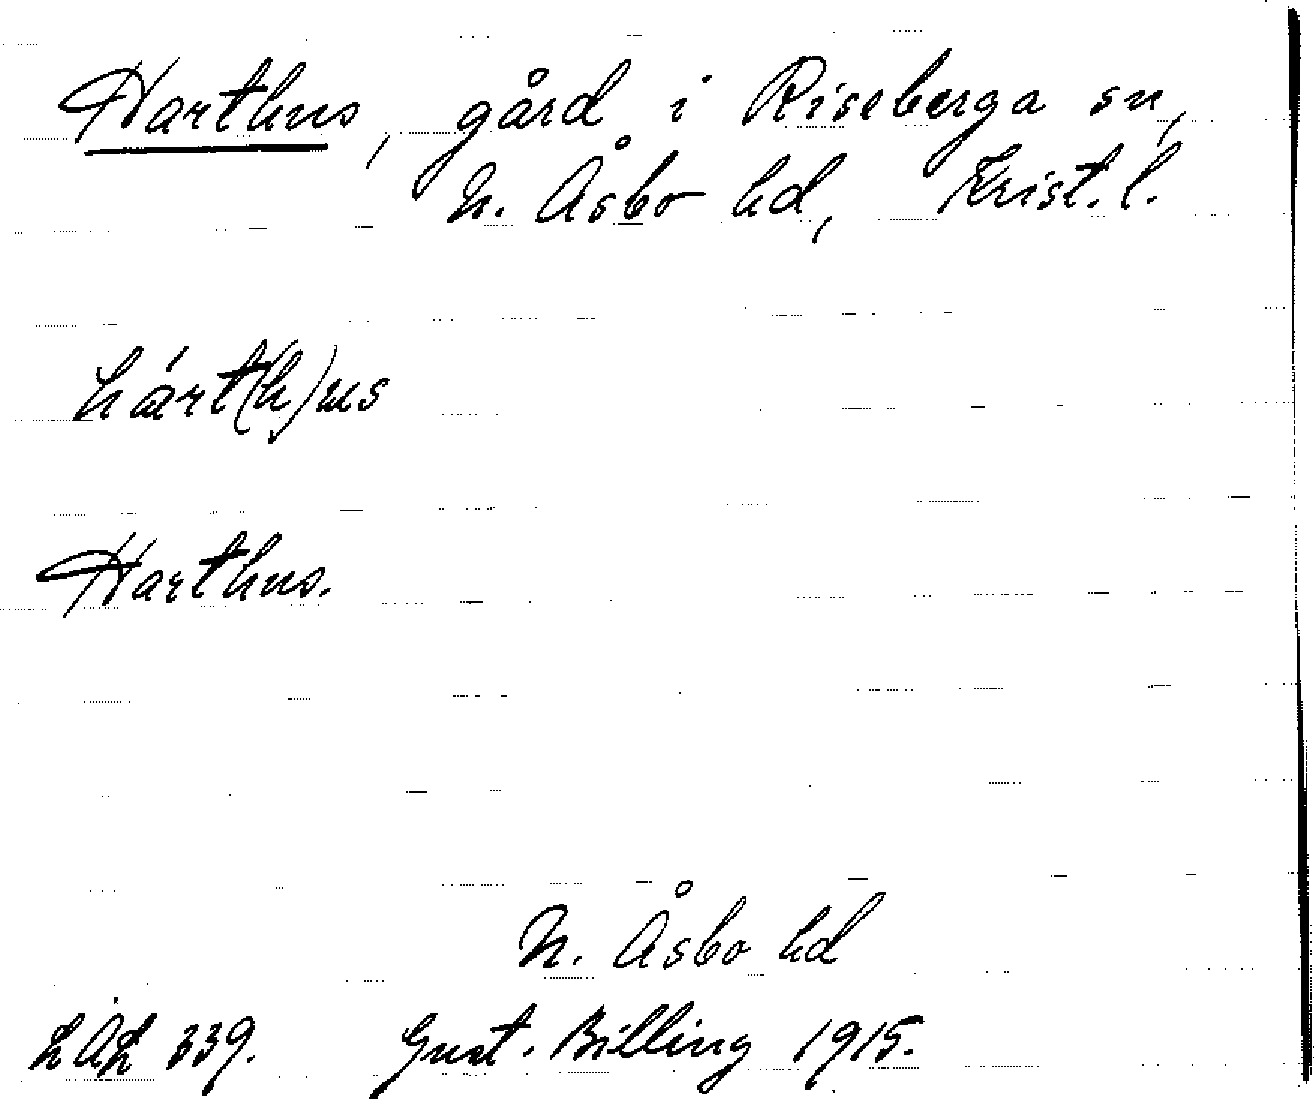 Harthus, gård i Riseberga sn,
N. Åsbo hd, Krist. l.
hárt(h)us
Harthus.
N. Åsbo hd
LAL 339. Gust. Billing 1915.